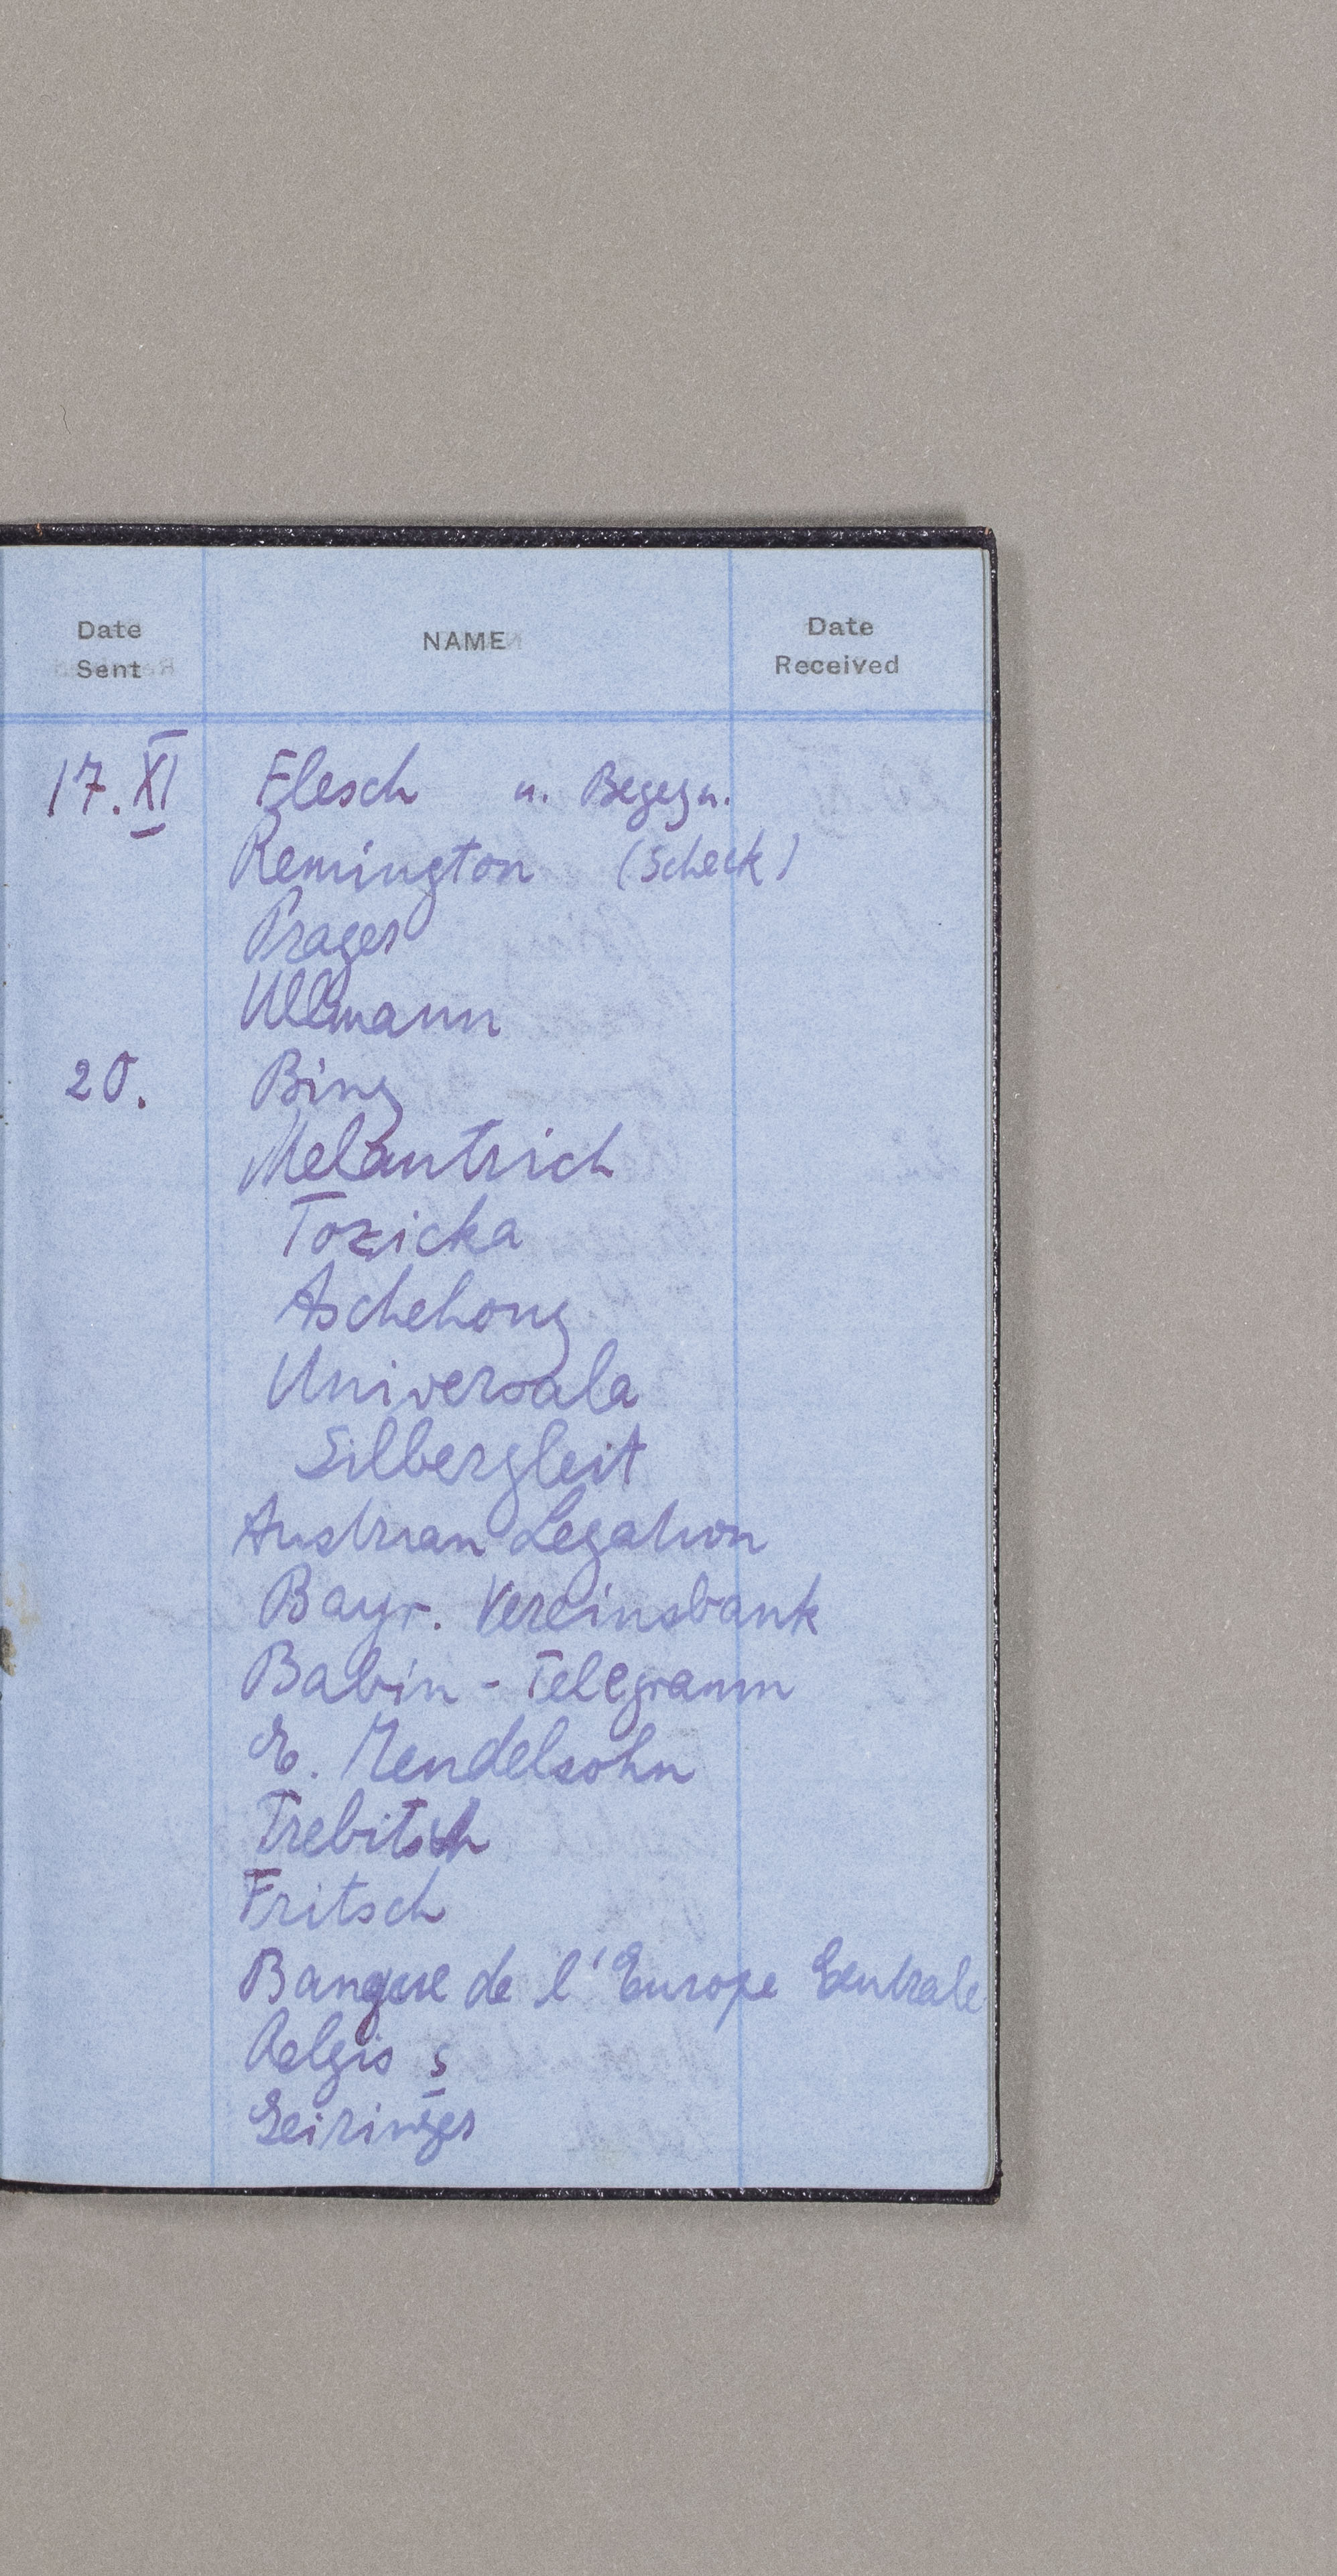 Date Sent NAME Date Received
17. XI Flesch u. Begegn.
Remington (Scheck)
Prager
Ullmann
20. Bing
Melantrich
Tozicka
Aschehoug
Universala
Silbergleit
Austrian Legation
Bayr. Vereinsbank
Babin - Telegramm
E. Mendelsohn
Trebitsch
Fritsch
Banque de l'Europe Centrale
Relgis s
Geiringer